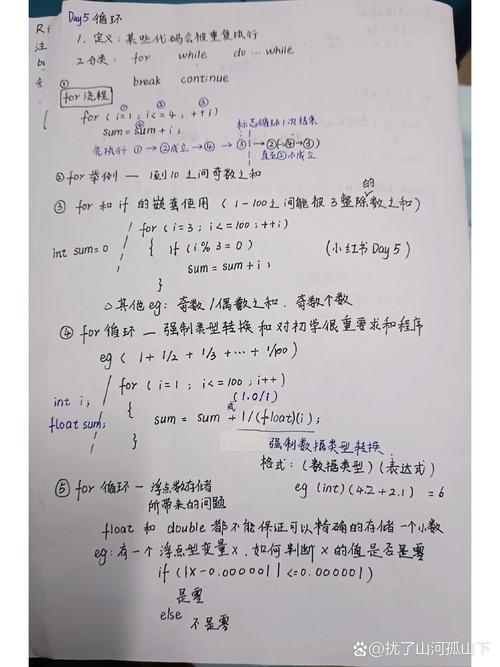 Day 5 循环
1. 定义：某些代码会被重复执行
2. 分类： for while do … while
break continue
① for 流程
① ② ③
for (i=1 ; i<=4 ; ++i)
④
sum = sum + i ;
标志循环1次结果
先执行 ① → ②成立 → ④ → ③ → ②(→④→③)
直至②不成立
② for 举例 — 1到10 之间奇数之和
③ for 和 if 的嵌套使用 ( 1-100之间能被3整除的数之和)
int sum=0 / for ( i=3 ; i<=100 ; ++i)
{ if (i%3=0) (小红书 Day 5)
sum = sum + i ;
}
△ 其他eg: 奇数/偶数之和. 奇数个数
④ for 循环 — 强制类型转换 和 对初学很重要求和程序
eg ( 1 + 1/2 + 1/3 + … + 1/100)
int i; / for ( i=1 ; i<=100 ; i++)
(1.0/i)
float sum; { sum = sum + 或 1/(float)(i) ;
}
强制数据类型转换
格式：(数据类型) (表达式)
eg (int) (4.2+2.1) = 6
⑤ for 循环 — 浮点数存储
所带来的问题
float 和 double 都不能保证可以精确的存储一个小数
eg: 有一个浮点型变量 x , 如何判断 x 的值是否是零
if ( |x-0.000001| <=0.000001)
是零
else
不是零
@扰了山河孤山下